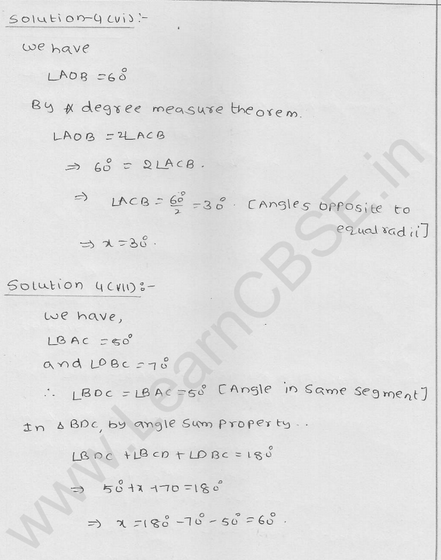 Solution-4(vi):-
we have
∠AOB = 60°
By degree measure theorem.
∠AOB = 2∠ACB
⇒ 60° = 2∠ACB.
⇒ ∠ACB = 60°/2 = 30°. [Angles opposite to
equal radii]
⇒ x = 30°.
Solution 4(vii):-
we have,
∠BAC = 50°
and ∠DBC = 70°
∴ ∠BDC = ∠BAC = 50° [Angle in same segment]
In △ BDC, by angle sum property..
∠BDC + ∠BCD + ∠DBC = 180°
⇒ 50° + x + 70 = 180°
⇒ x = 180° - 70° - 50° = 60°.
www.LearnCBSE.in